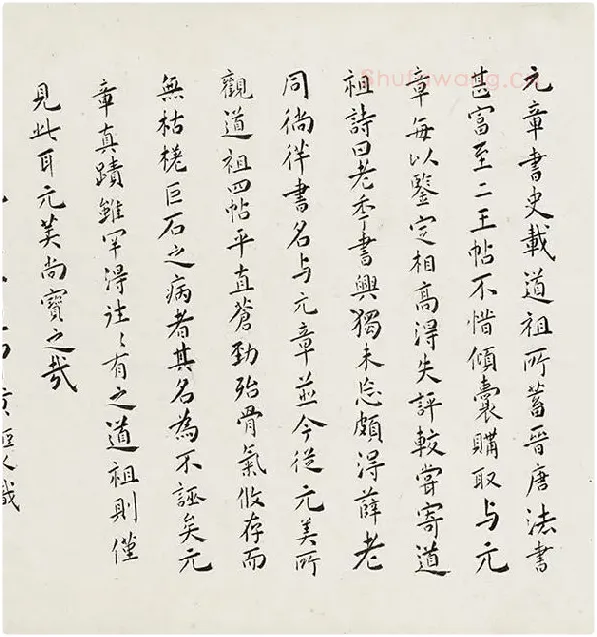 元章書史載道祖所蓄晉唐法書
甚富至二王帖不惜傾囊購取与元
章每以鑒定相高得失評較嘗寄道
祖詩曰老季書興獨未忘頗得薛老
同徜徉書名与元章並今從元美所
觀道祖四帖平直蒼勁殆骨氣攸存而
無枯槎巨石之病者其名為不誣矣元
章真蹟雖罕得往〻有之道祖則僅
見此耳元美尚寶之哉